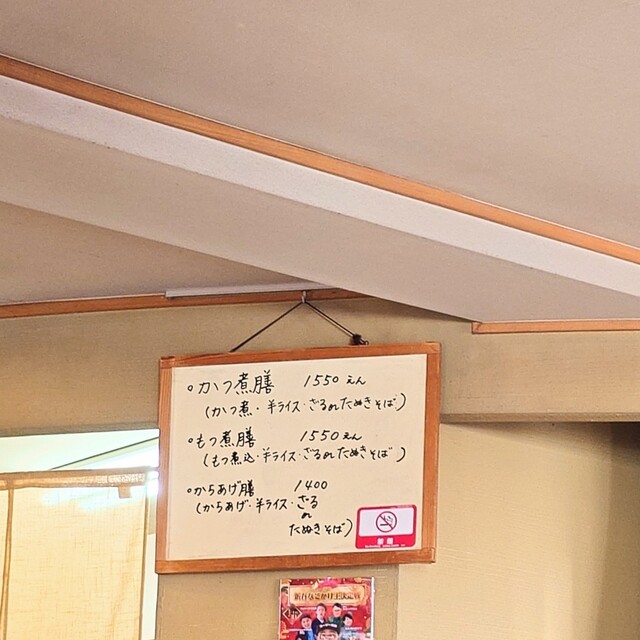 ◦かつ煮膳 1550えん
(かつ煮・半ライス・ざるorたぬきそば)
◦もつ煮膳 1550えん
(もつ煮込・半ライス・ざるorたぬきそば)
◦からあげ膳 1400
(からあげ・半ライス・ざる
or
たぬきそば)
禁煙